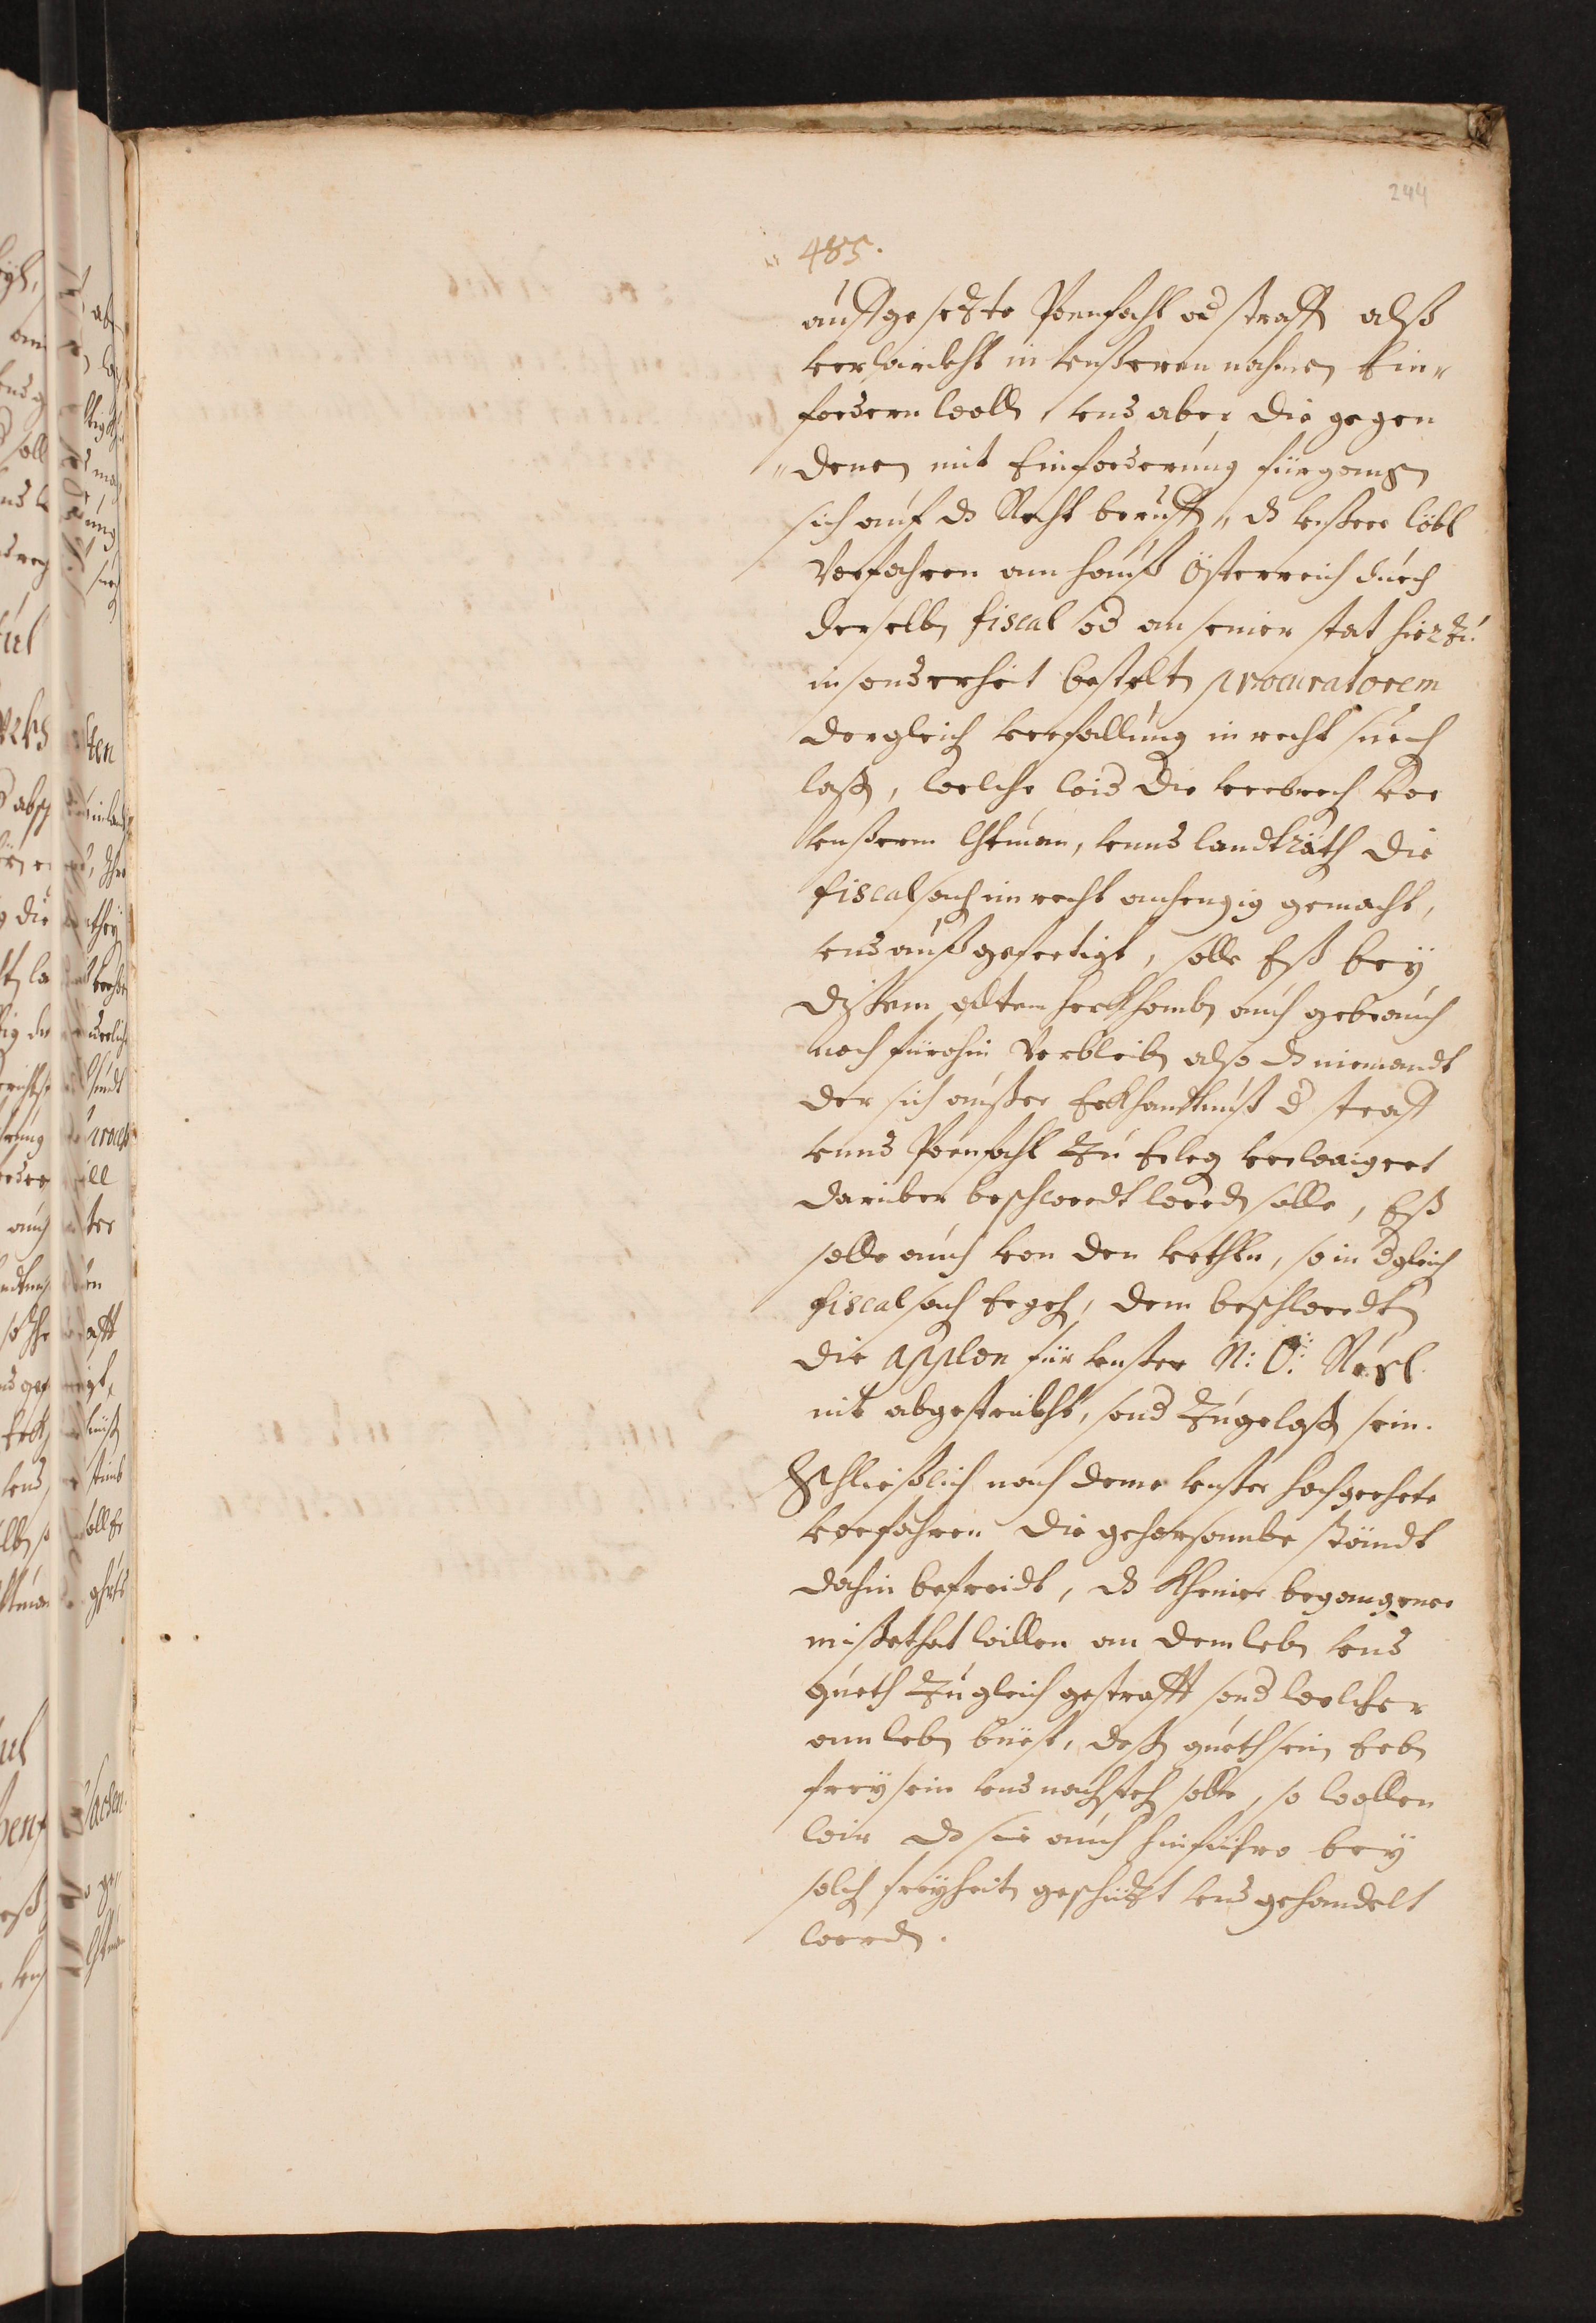 244
485.
auffgesezte Poenfahl od straff alß
verwürckht in vnßeren nahmen Ein-
fordern woll, vnd aber die gegen
denen mit Einforderung fürgangen
sich auf dz Recht berufft, dz vnßere löbl
Vorfahren am hauß Österreich durch
derselbn fiscal od an seiner stat hierzu
insonderheit bestelten procuratorem
dergleich verfallung in recht such
lassen, welche wid die verbrech vor
vnßerm lhtman, vnnd landträth die
fiscal sach im recht anhengig gemacht,
vnd außgefertigt, solle Eß bey
dißem alten herkhomben auch gebrauch
noch fürohin Verbleiben also dz niemandt
der sich außer Erkhandtnuß d straff
vnnd Poenfahl zu Erleg verwaigert
darüber beschwerdt werden solle, Eß
solle auch von den vrthln, so in dgleich
fiscal sach Ergeh, dem beschwerdten
die applon für vnßer N: Ö: Regl.
nit abgestrickht, sond zugelassen sein.
Schließlich nach deme vnßer hochgeehrte
vorfahren die gehorsambe ständt
dahin befreidt, dz kheiner begangener
mißethat willen an dem leben vnd
gueth zugleich gestrafft sond welcher
am leben büest, deßen gueth sein Erben
frey sein vnd nachsteh solle, so wollen
wir dz sie auch hinfüro bey
solch freyheiten geschüzt vnd gehandelt
werden.